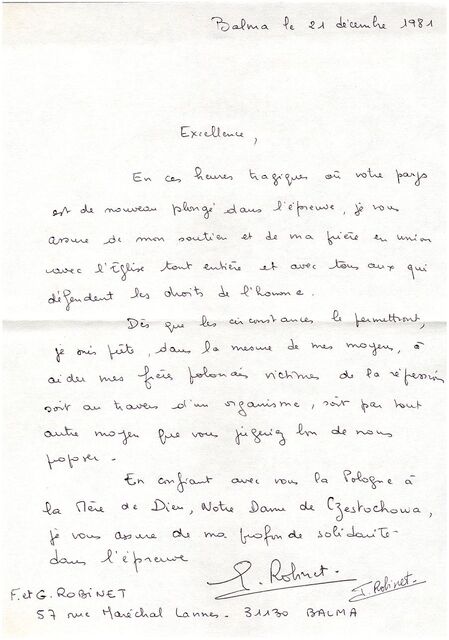 Balma le 21 décembre 1981
Excellence,
En ces heures tragiques où votre pays
est de nouveau plongé dans l'épreuve, je vous
assure de mon soutien et de ma prière en union
avec l'Église tout entière et avec tous ceux qui
défendent les droits de l'homme.
Dès que les circonstances le permettront,
je suis prête, dans la mesure de mes moyens, à
aider mes frères polonais victimes de la répression
soit au travers d'un organisme, soit par tout
autre moyen que vous jugeriez bon de nous
proposer.
En confiant avec vous la Pologne à
la Mère de Dieu, Notre Dame de Czestochowa,
je vous assure de ma profonde solidarité
dans l'épreuve
G. Robinet.
F. Robinet.
F. et G. ROBINET
57 rue Maréchal Lannes. 31130 BALMA